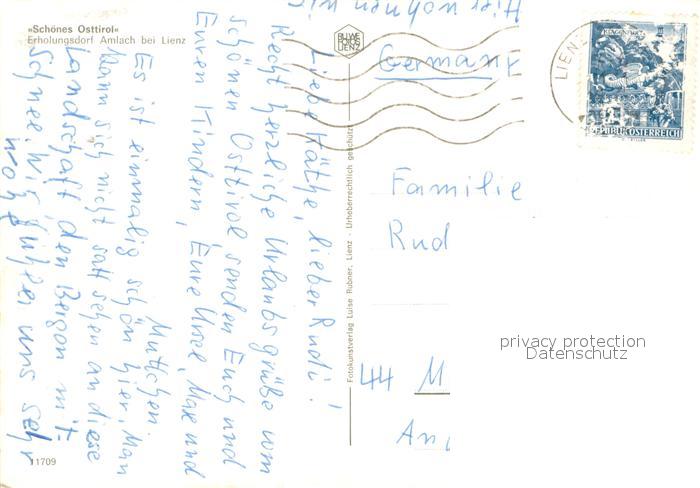 »Schönes Osttirol«
Erholungsdorf Amlach bei Lienz
Liebe Käthe, lieber Rudi!
Recht herzliche Urlaubsgrüße vom
schönen Osttirol senden Euch und
Euren Kindern, Eure Ursel, Maxe und
Muttchen.
Es ist einmalig schön hier. Man
kann sich nicht satt sehen an diese
Landschaft, den Bergen mit
Schnee. Wir fühlen uns sehr
wohl
Hier wohnen wir
11709
Fotokunstverlag Luise Rubner, Lienz - Urheberrechtlich geschützt
LIENZ
LIENZ
KLAGENFURT
REPUBLIK ÖSTERREICH
Germany
Familie
Rud
44 M
Am
privacy protection
Datenschutz